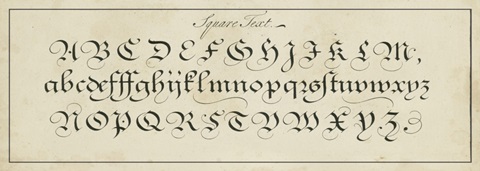 Square Text.
A B C D E F G H I J K L M,
abcdefffghijklmnopqrsſtuvwxyz
N O P Q R S T V W X Y Z.